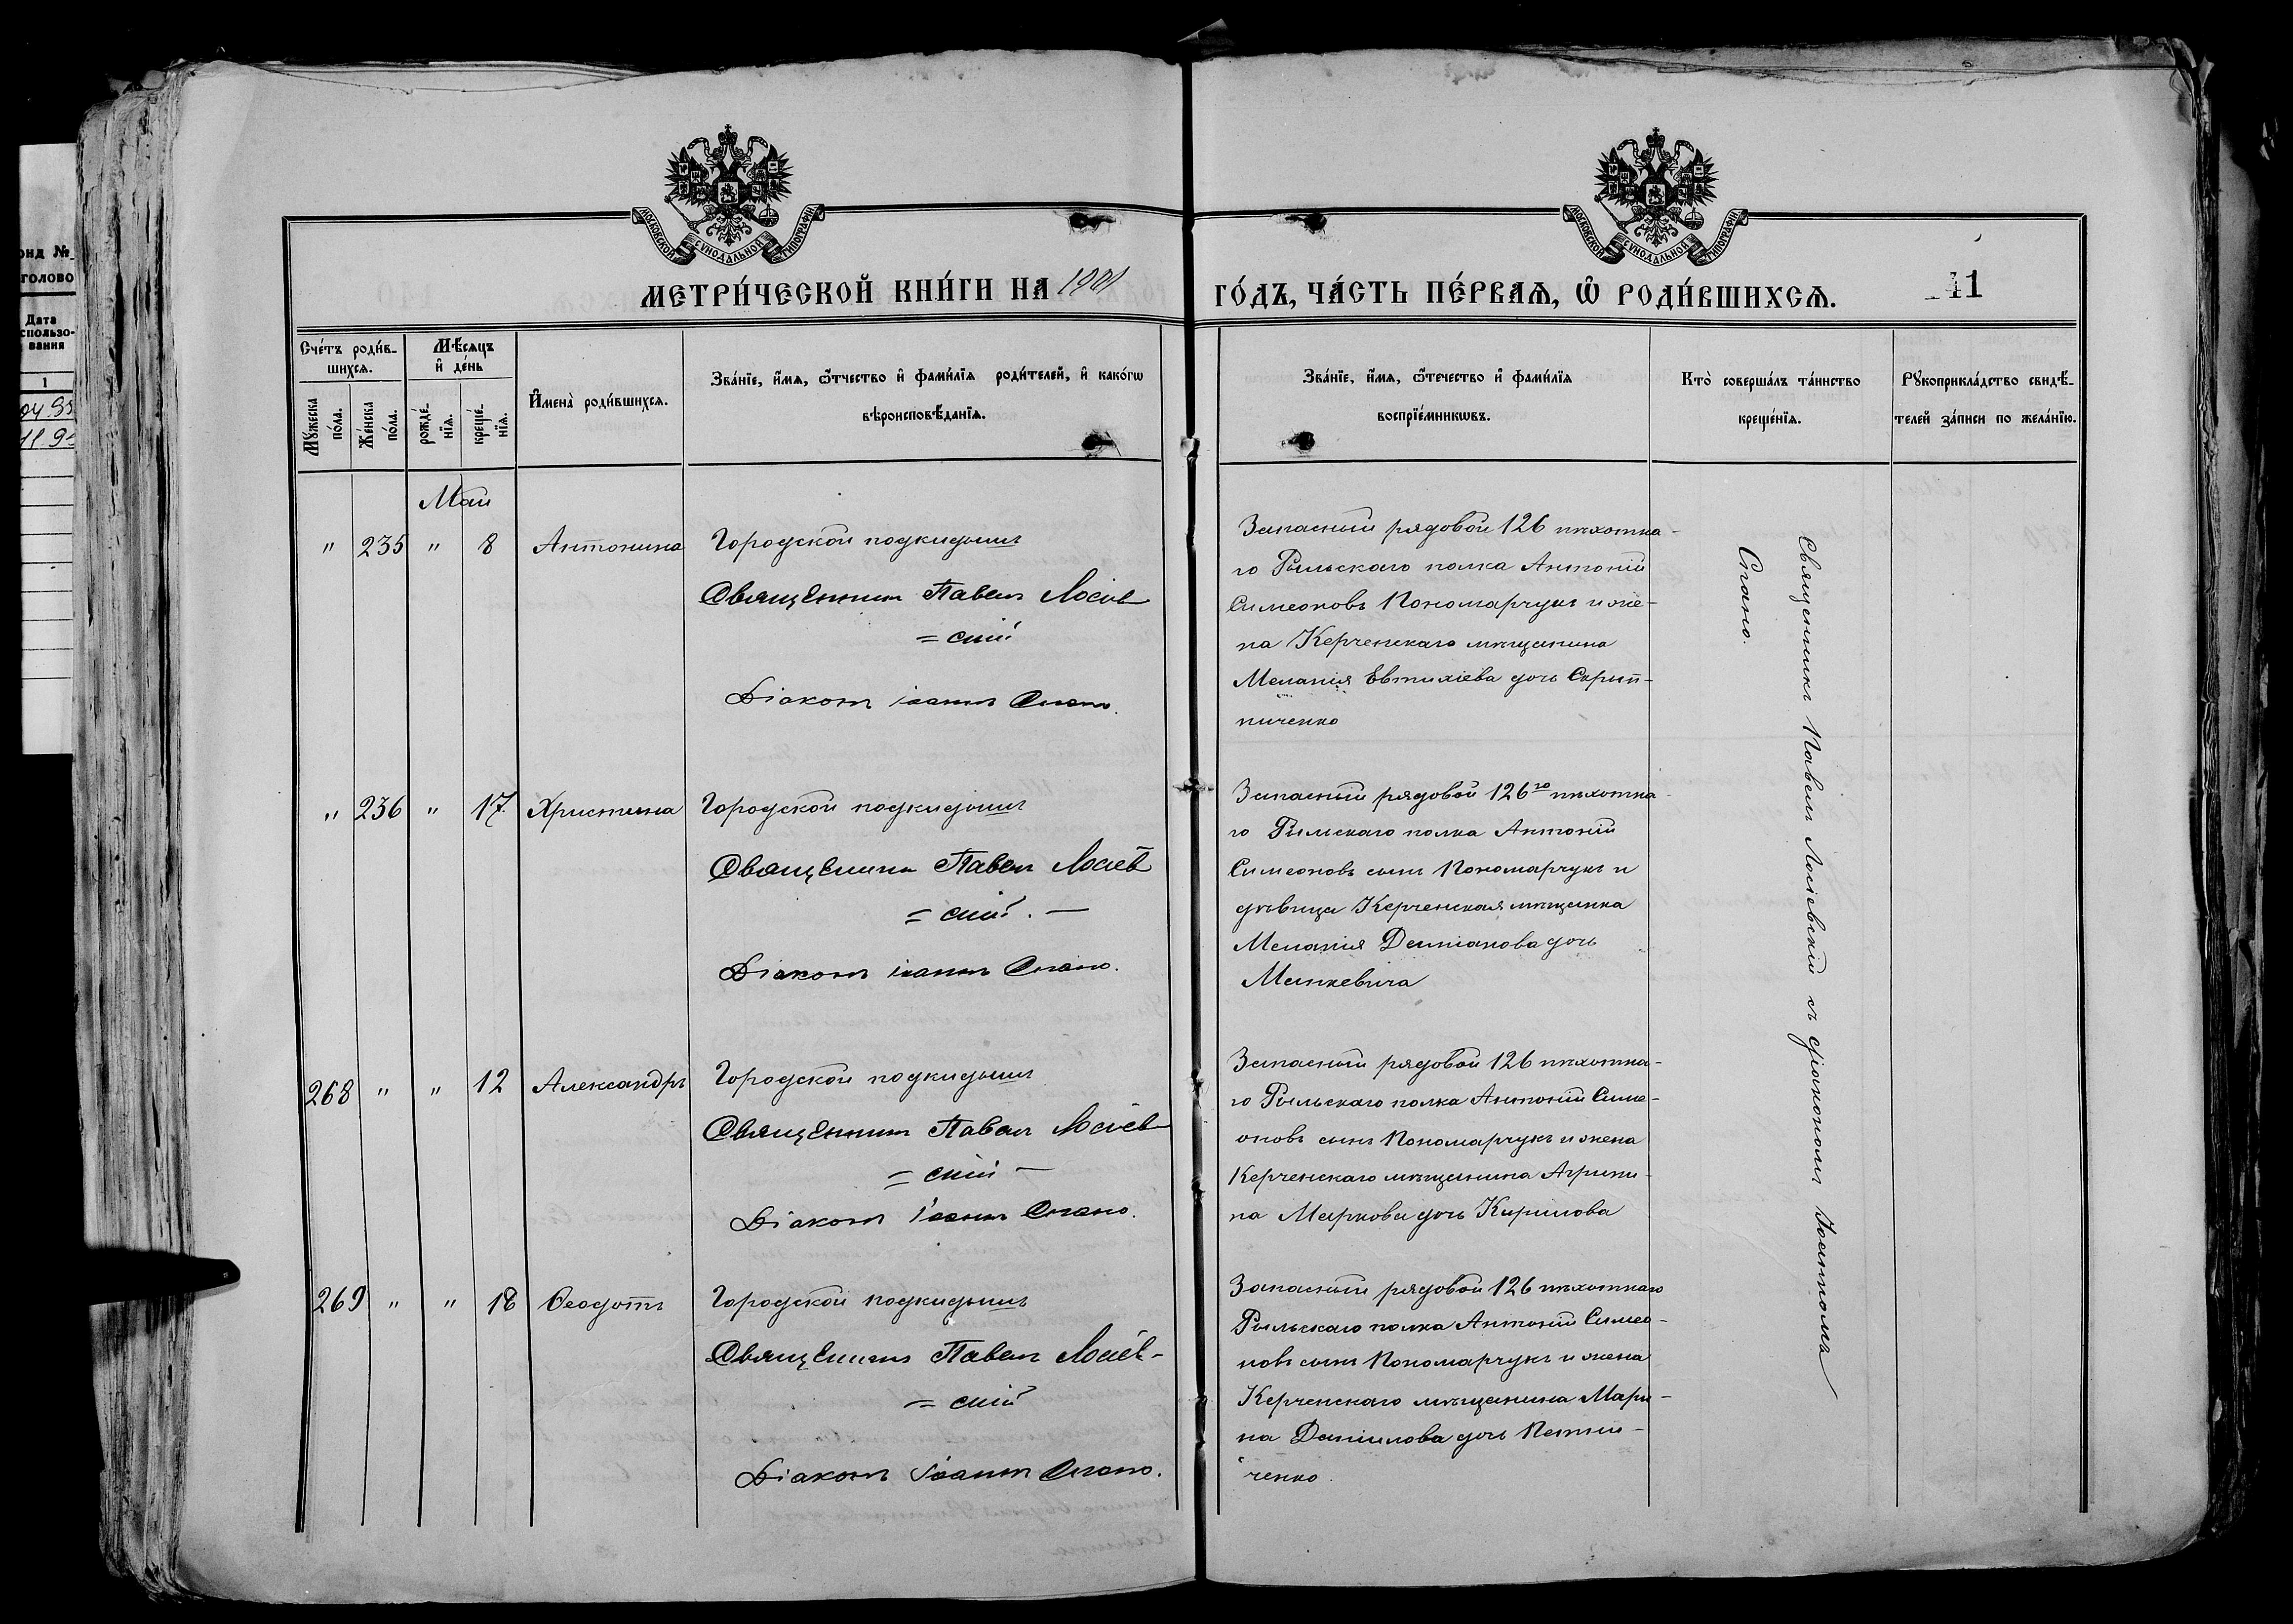 онд №
головo
Дата
спользо-
вания
1
МОСКОВСКОЙ СУНОДАЛЬНОЙ ТИПОГРАФІИ
МОСКОВСКОЙ СУНОДАЛЬНОЙ ТИПОГРАФІИ
МЕТРИ́ЧЕСКОЙ КНИ́ГИ НА 1901
ГО́ДЪ, ЧА́СТЬ ПЕ́РВАѦ, Ѽ РОДИ́ВШИХСѦ.
41
Сче́тъ роди́в-
шихсѧ.
Мꙋжеска по́ла.
Же́нска по́ла.
Мѣ́сѧцъ
и҆ де́нь
рожде́-
нїѧ.
креще́-
нїѧ.
И҆мена̀ роди́вшихсѧ.
Зва́нїе, и҆́мѧ, ѻ҆́тчество и҆ фами́лїѧ роди́телей, и҆ како́гѡ
вѣроисповѣ́данїѧ.
Зва́нїе, и҆́мѧ, ѻ҆́течество и҆ фами́лїѧ
воспрїе́мникѡвъ.
Кто̀ соверша́лъ та́инство
креще́нїѧ.
Рꙋкоприкла́дство свидѣ́-
телей за́писи по жела́нїю.
Май
" 235 " 8 Антонина
Городской подкидышъ
Священникъ Павелъ Лосіев
= скій
Діаконъ Іоаннъ Спано.
Запасный рядовой 126 пѣхотна-
го Рыльскаго полка Антоній
Симеоновъ Пономарчукъ и же-
на Керченскаго мѣщанина
Меланія Евтихіева дочь Скрып-
ниченко
Священникъ Павелъ Лосіевскій съ діакономъ Іоанномъ
Спано.
" 236 " 17 Христина
Городской подкидышъ
Священникъ Павелъ Лосіев
= скій. —
Діаконъ Іоаннъ Спано.
Запасный рядовой 126го пѣхотна-
го Рыльскаго полка Антоній
Симеоновъ сынъ Пономарчукъ и
дѣвица Керченская мѣщанка
Меланія Даміанова дочь
Манкевича
268 " " 12 Александръ
Городской подкидышъ
Священникъ Павелъ Лосіев
= скій —
Діаконъ Іоаннъ Спано.
Запасный рядовой 126 пѣхотна-
го Рыльскаго полка Антоній Симе-
оновъ сынъ Пономарчукъ и жена
Керченскаго мѣщанина Агрипи-
на Маркова дочь Кирилова
269 " " 18 Ѳеодотъ
Городской подкидышъ
Священникъ Павелъ Лосіев-
= скій
Діаконъ Іоаннъ Спано.
Запасный рядовой 126 пѣхотнаго
Рыльскаго полка Антоній Симео-
новъ сынъ Пономарчукъ и жена
Керченскаго мѣщанина Мари-
на Даніилова дочь
ченко.